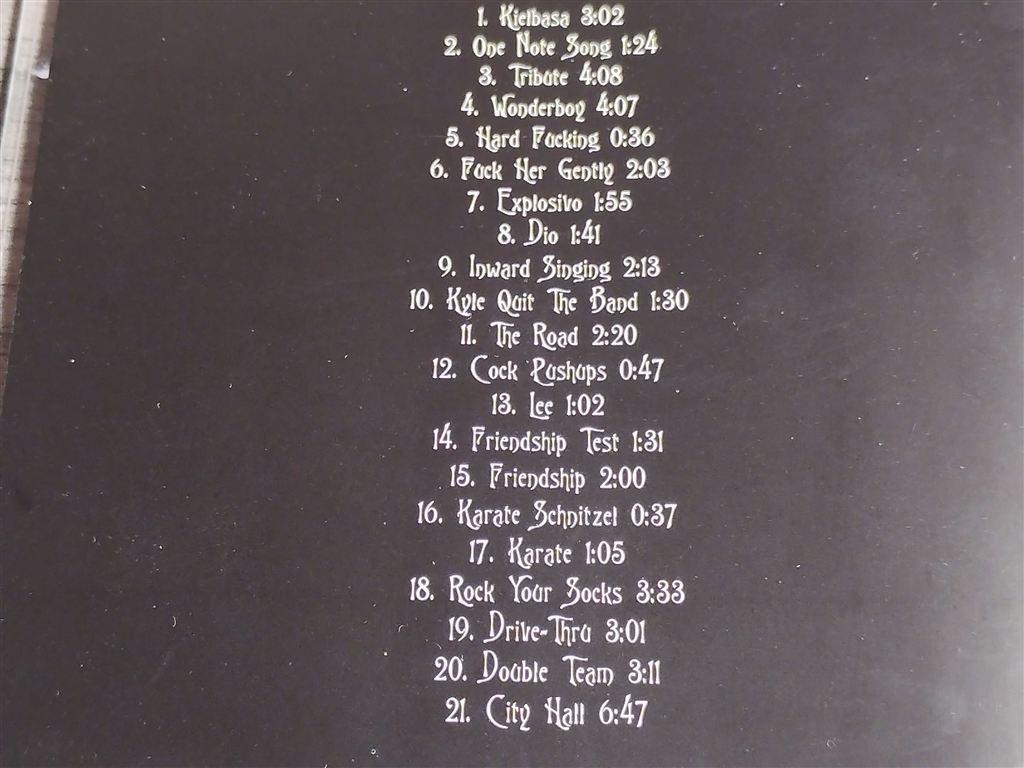 1. Kielbasa 3:02
2. One Note Song 1:24
3. Tribute 4:08
4. Wonderboy 4:07
5. Hard Fucking 0:36
6. Fuck Her Gently 2:03
7. Explosivo 1:55
8. Dio 1:41
9. Inward Singing 2:13
10. Kyle Quit The Band 1:30
11. The Road 2:20
12. Cock Pushups 0:47
13. Lee 1:02
14. Friendship Test 1:31
15. Friendship 2:00
16. Karate Schnitzel 0:37
17. Karate 1:05
18. Rock Your Socks 3:33
19. Drive-Thru 3:01
20. Double Team 3:11
21. City Hall 6:47